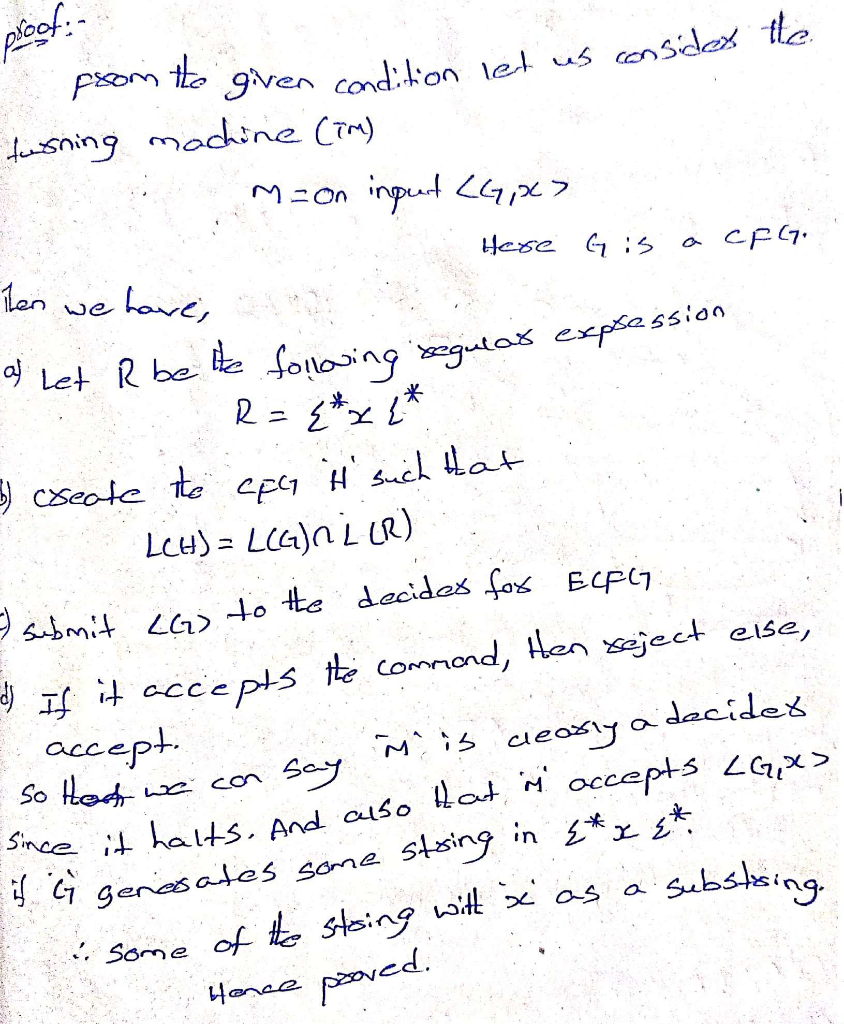 proof:-
From the given condition let us consider the
turning machine (TM)
M = on input <G,x>
Here G is a CFG.
Then we have,
a) Let R be the following regular expression
R = Σ*xΣ*
b) create the CFG 'H' such that
L(H) = L(G)∩L(R)
c) submit <G> to the decider for ECFG
d) If it accepts the command, then reject else,
accept.
So we can say 'M' is clearly a decider
since it halts. And also that 'M' accepts <G,x>
if 'G' generates some string in Σ*xΣ*.
∴ some of the string with 'x' as a substring.
Hence proved.